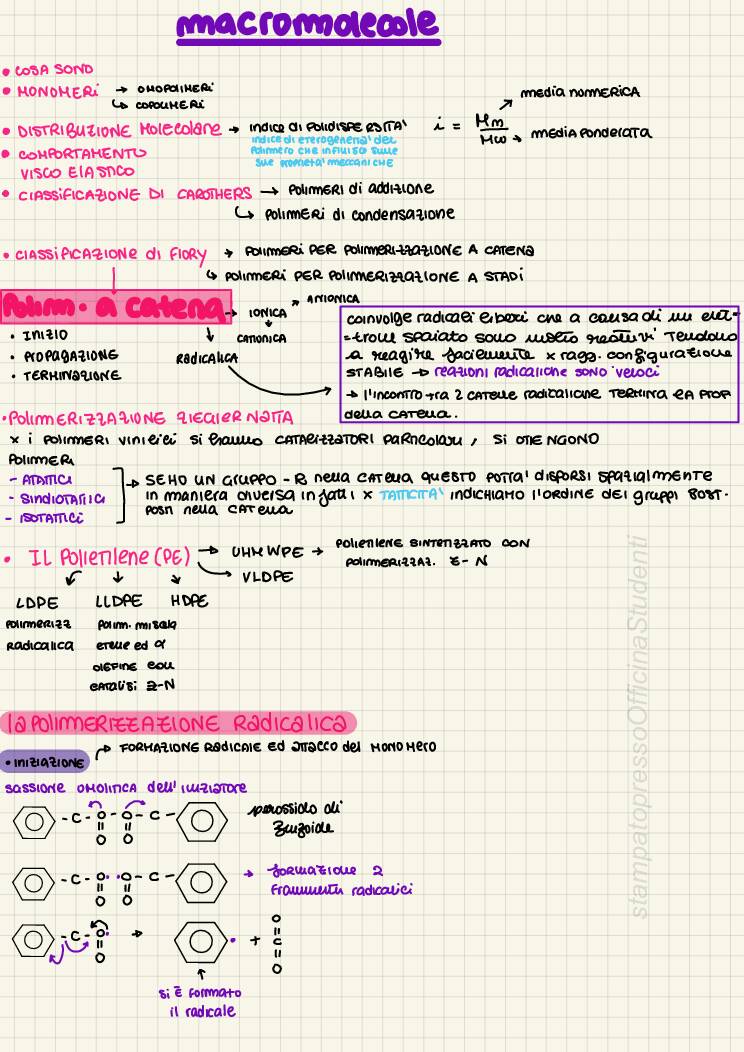 macromolecole
• COSA SONO
• MONOMERi → OMOPOLIMERi
↳ COPOLIMERI
media nommerica
• DISTRIBUZIONE MOLECOLARE → INDICE Di POLIDISPERSITA' i = Mm / Mw → MEDIA PONDERATA
indice di eterogeneita' del
Polimero che influisce sulle
sue proprieta' meccaniche
• COMPORTAMENTO
VISCO ELASTICO
• CLASSIFICAZIONE DI CAROTHERS → POLIMERI di addizione
↳ POLIMERI di condensazione
• CLASSIFICAZIONE di FlORY → POLIMERI PER POLIMERIZZAZIONE A CATENA
↳ POLIMERI PER POLIMERIZZAZIONE A STADI
Polim. a catena → IONICA → ANIONICA
CATIONICA
RADICALICA
• INIZIO
• PROPAGAZIONE
• TERMINAZIONE
coinvolge radicali liberi che a causa di un elet-
-trone spaiato sono molto reattivi Tendono
a reagire facilmente x ragg. configurazione
STABILE → reazioni radicaliche sono veloci
→ l'incontro tra 2 catene radicaliche TERMINA LA PROP
della CATENA.
• POLIMERIZZAZIONE ZIEGLER NATTA
x i POLIMERI VINILICI SI HANNO CATALIZZATORI PARTICOLARI, SI OTTENGONO
POLIMERI
- ATATTICI
- SINDIOTATTICI
- ISOTATTICI
→ SEHO UN GRUPPO - R nella CATENA QUESTO POTRA' DISPORSI SPAZIALMENTE
in maniera diversa infatti x TATTICITA' INDICHIAMO l'ORDINE DEI gruppi SOST.
POSTI nella CATENA
• IL POLIETILENE (PE) → UHMWPE → POLIETILENE SINTETIZZATO CON
POLIMERIZZAZ. Z-N
→ VLDPE
LDPE LLDPE HDPE
POLIMERIZZ
RADICALICA
POLIM. miscela
ETILENE ed α
OLEFINE CON
CATALISI Z-N
la POLIMERIZZAZIONE RADICALICA
• INIZIAZIONE → FORMAZIONE RADICALE ED ATTACCO del MONOMERO
SCISSIONE OMOLITICA dell'INIZIATORE
- C - O O - C -
O O
perossido di
Benzoile
- C - O · · O - C -
O O
→ formazione 2
frammenti radicalici
- C - O· → · + O = C = O
O
SI È FORMATO
il radicale
stampatopressoOfficinaStudenti